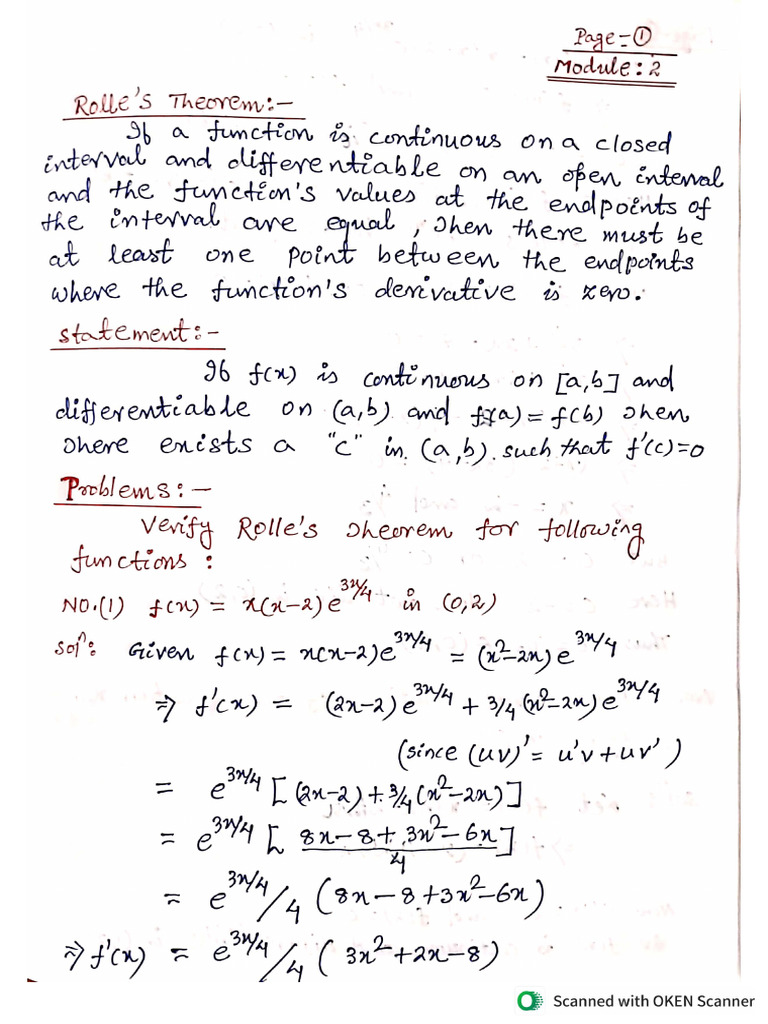 Page=①
Module: 2
Rolle's Theorem:-
If a function is continuous on a closed
interval and differentiable on an open interval
and the function's values at the endpoints of
the interval are equal, then there must be
at least one point between the endpoints
where the function's derivative is zero.
Statement:-
If f(x) is continuous on [a,b] and
differentiable on (a,b) and f(a)=f(b) then
there exists a "c" in (a,b) such that f'(c)=0
Problems:-
Verify Rolle's theorem for following
functions:
NO.(1) f(x) = x(x-2)e^{3x/4} in (0,2)
Solⁿ: Given f(x)=x(x-2)e^{3x/4} = (x²-2x)e^{3x/4}
⇒ f'(x) = (2x-2)e^{3x/4} + 3/4(x²-2x)e^{3x/4}
(since (uv)'= u'v+uv')
= e^{3x/4} [(2x-2)+3/4(x²-2x)]
= e^{3x/4} [8x-8+3x²-6x / 4]
= e^{3x/4}/4 (8x-8+3x²-6x)
⇒ f'(x) = e^{3x/4}/4 (3x²+2x-8)
Scanned with OKEN Scanner